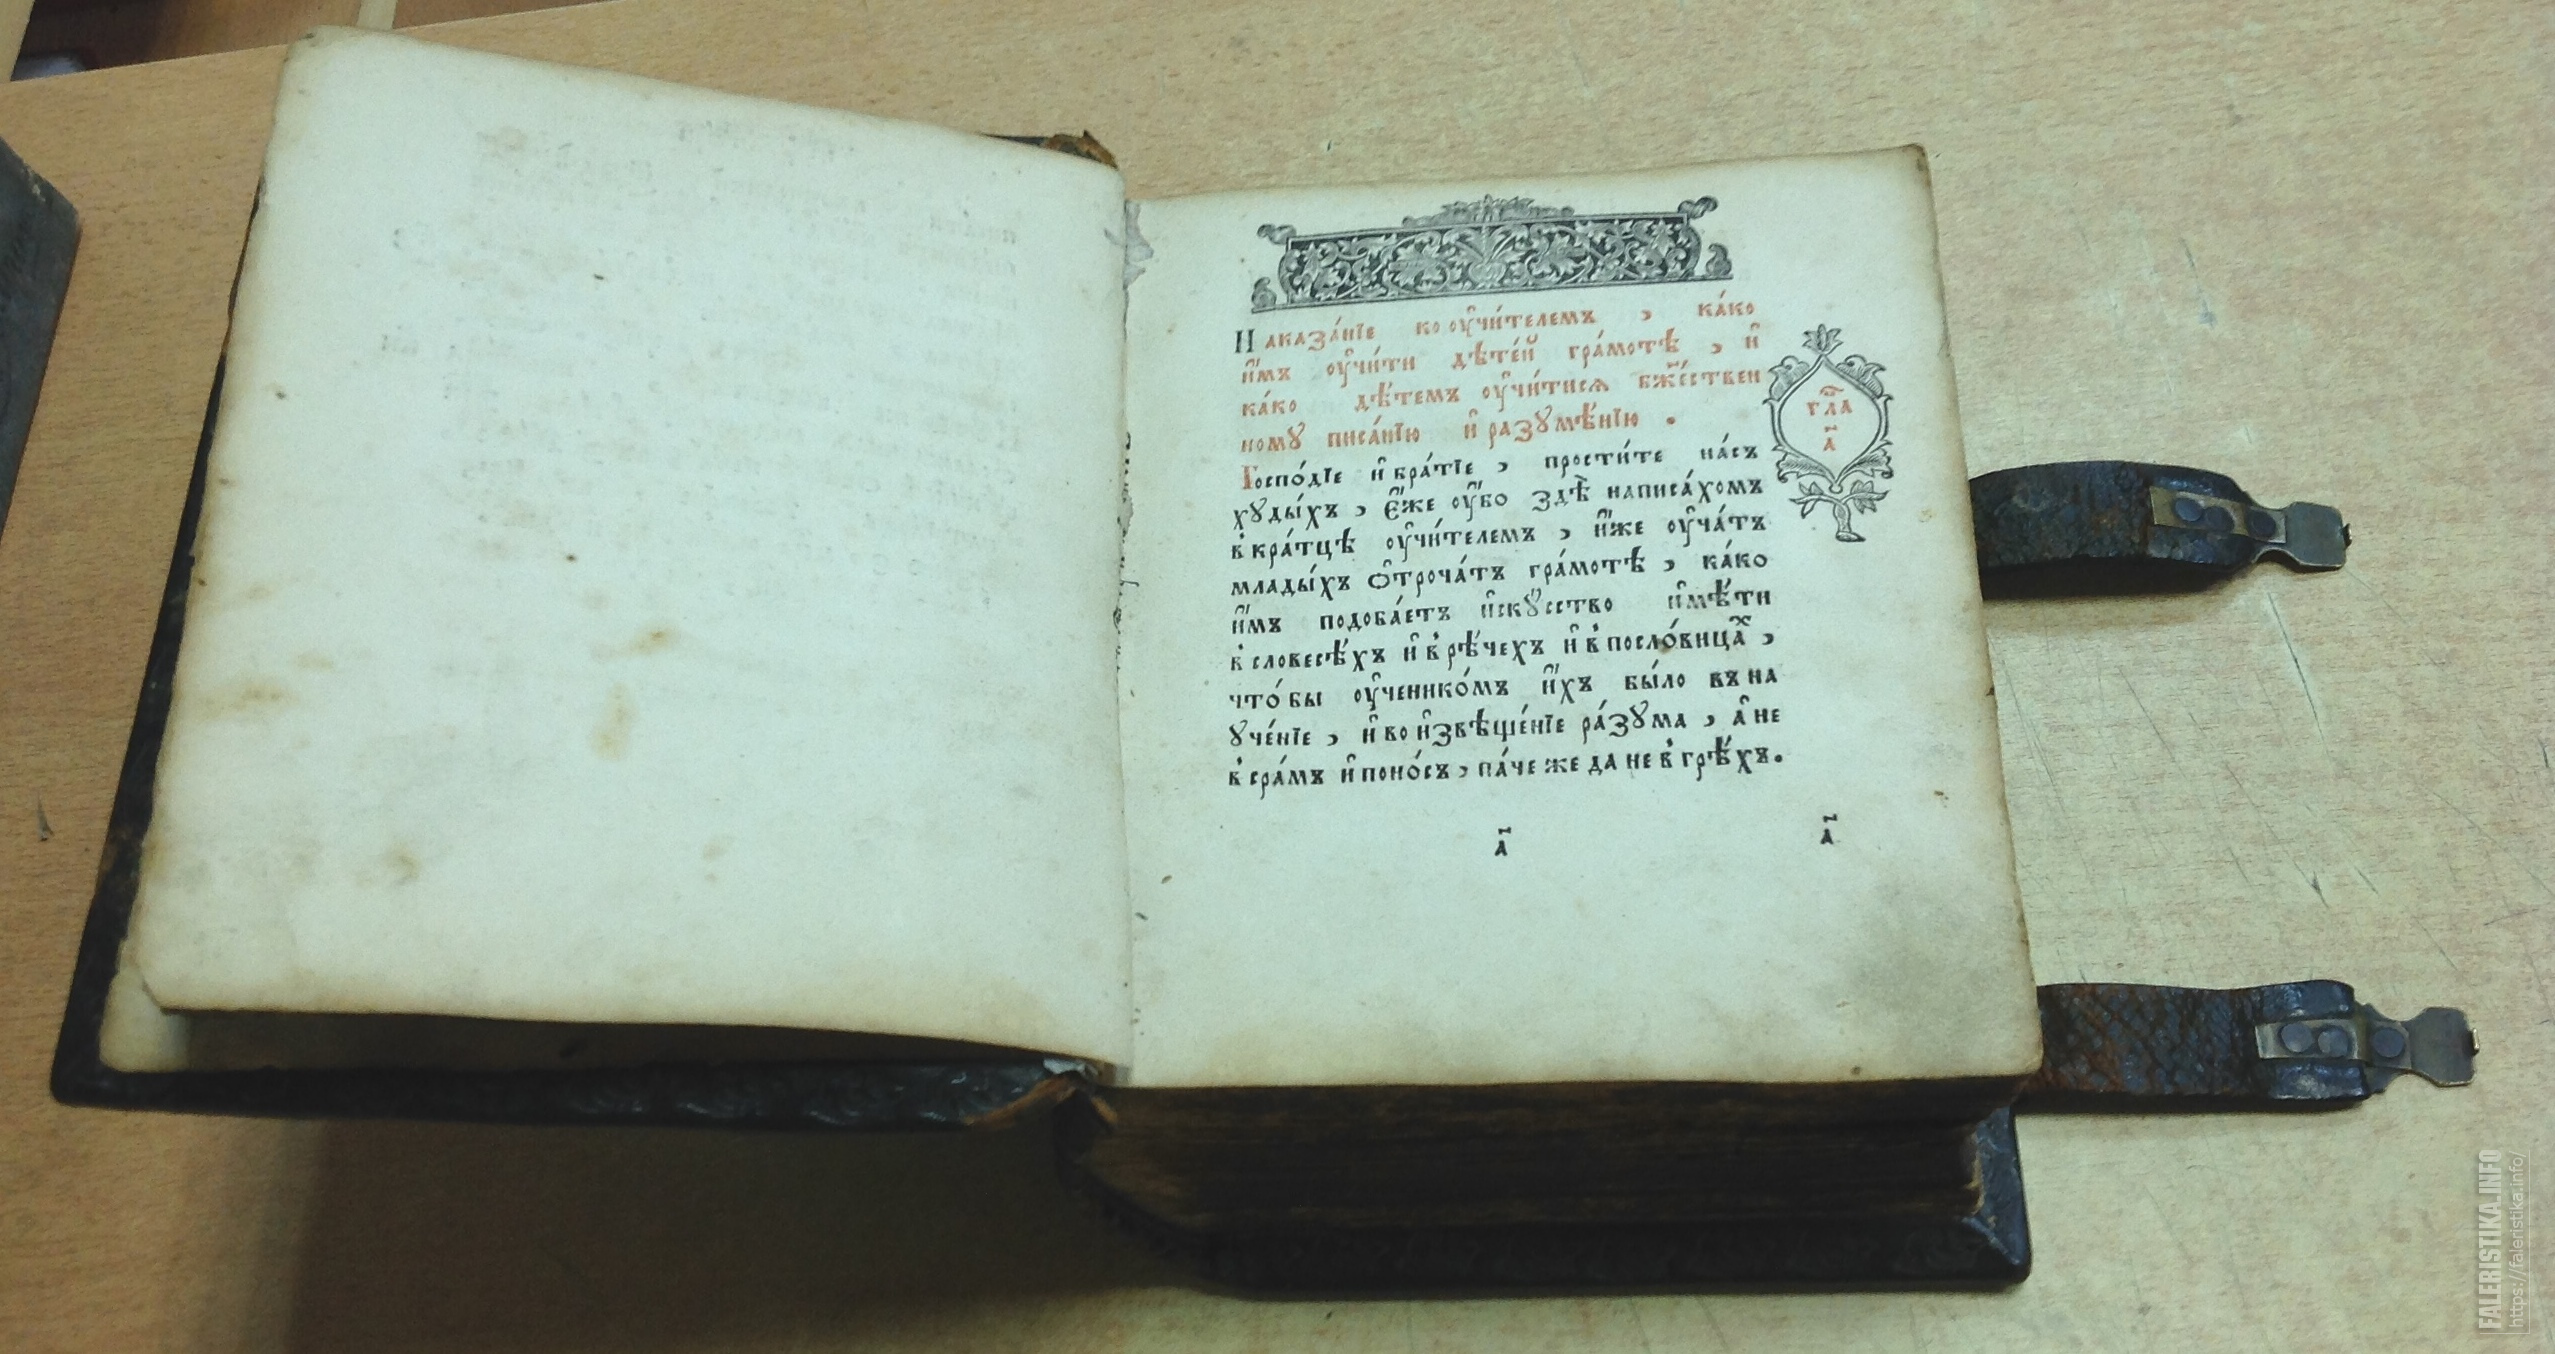 Наказа́нїе ко ᲂу҆чи́телемъ , ка́ко
и҆̀мъ ᲂу҆чи́ти дѣте́й гра́мотѣ , и҆
ка́ко дѣ́темъ ᲂу҆чи́тисѧ бж҃е́ствен
ному писа́нїю и҆ разꙋмѣ́нїю .
Госпо́дїе и҆ бра́тїе , прости́те на́съ
хꙋды́хъ , є҆́же ᲂу҆́бо здѣ̀ написа́хомъ
вкра́тцѣ ᲂу҆чи́телемъ , и҆́же ᲂу҆ча́тъ
млады́хъ ѻ҆троча́тъ гра́мотѣ , ка́ко
и҆́мъ подоба́етъ и҆скꙋ́сство и҆мѣ́ти
в словесѣ́хъ и҆ в рѣ́чехъ и҆ в посло́вицаⷯ ,
что́ бы ᲂу҆ченико́мъ и҆́хъ бы́ло въ на
ꙋче́нїе , и҆ во и҆звѣще́нїе ра́зꙋма , а҆ не
в сра́мъ и҆ поно́съ , па́че же да не в грѣ́хъ .
гла҃
а҃
а҃ а҃
FALERISTIKA.INFO
https://faleristika.info/